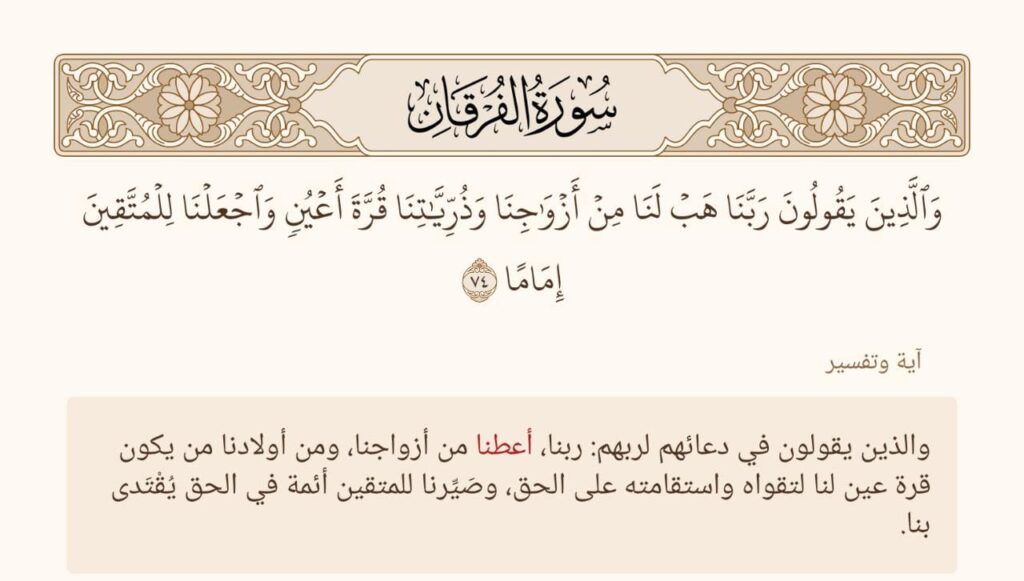 سُورَةُ الفُرْقَانِ
وَٱلَّذِينَ يَقُولُونَ رَبَّنَا هَبۡ لَنَا مِنۡ أَزۡوَٰجِنَا وَذُرِّيَّٰتِنَا قُرَّةَ أَعۡيُنٖ وَٱجۡعَلۡنَا لِلۡمُتَّقِينَ
إِمَامًا ٧٤
آية وتفسير
والذين يقولون في دعائهم لربهم: ربنا، أعطنا من أزواجنا، ومن أولادنا من يكون
قرة عين لنا لتقواه واستقامته على الحق، وصَيِّرنا للمتقين أئمة في الحق يُقْتَدى
بنا.